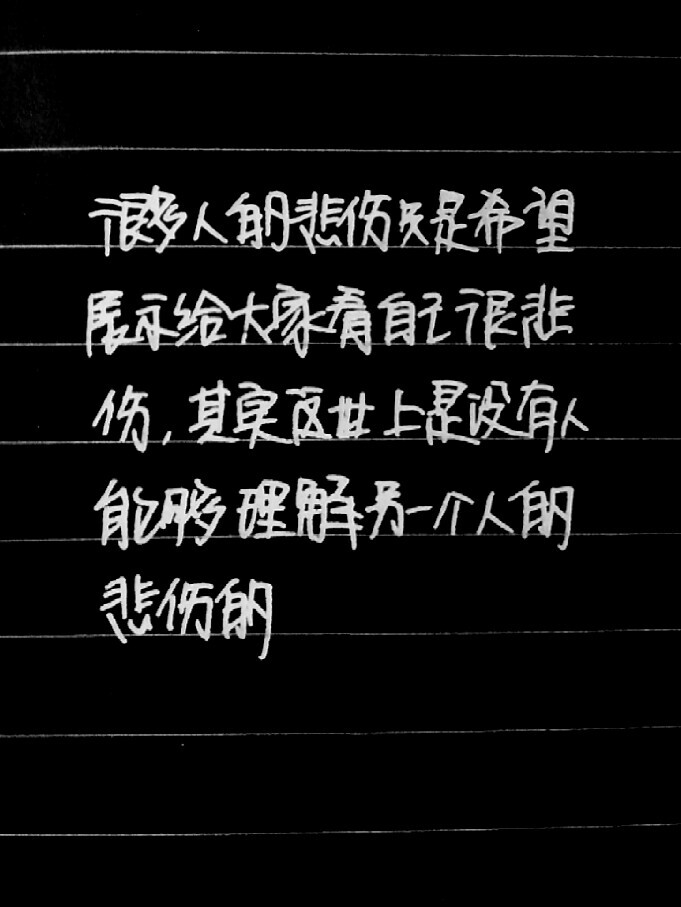 很多人的悲伤只是希望
展示给大家看自己很悲
伤,其实这世上是没有人
能够理解另一个人的
悲伤的